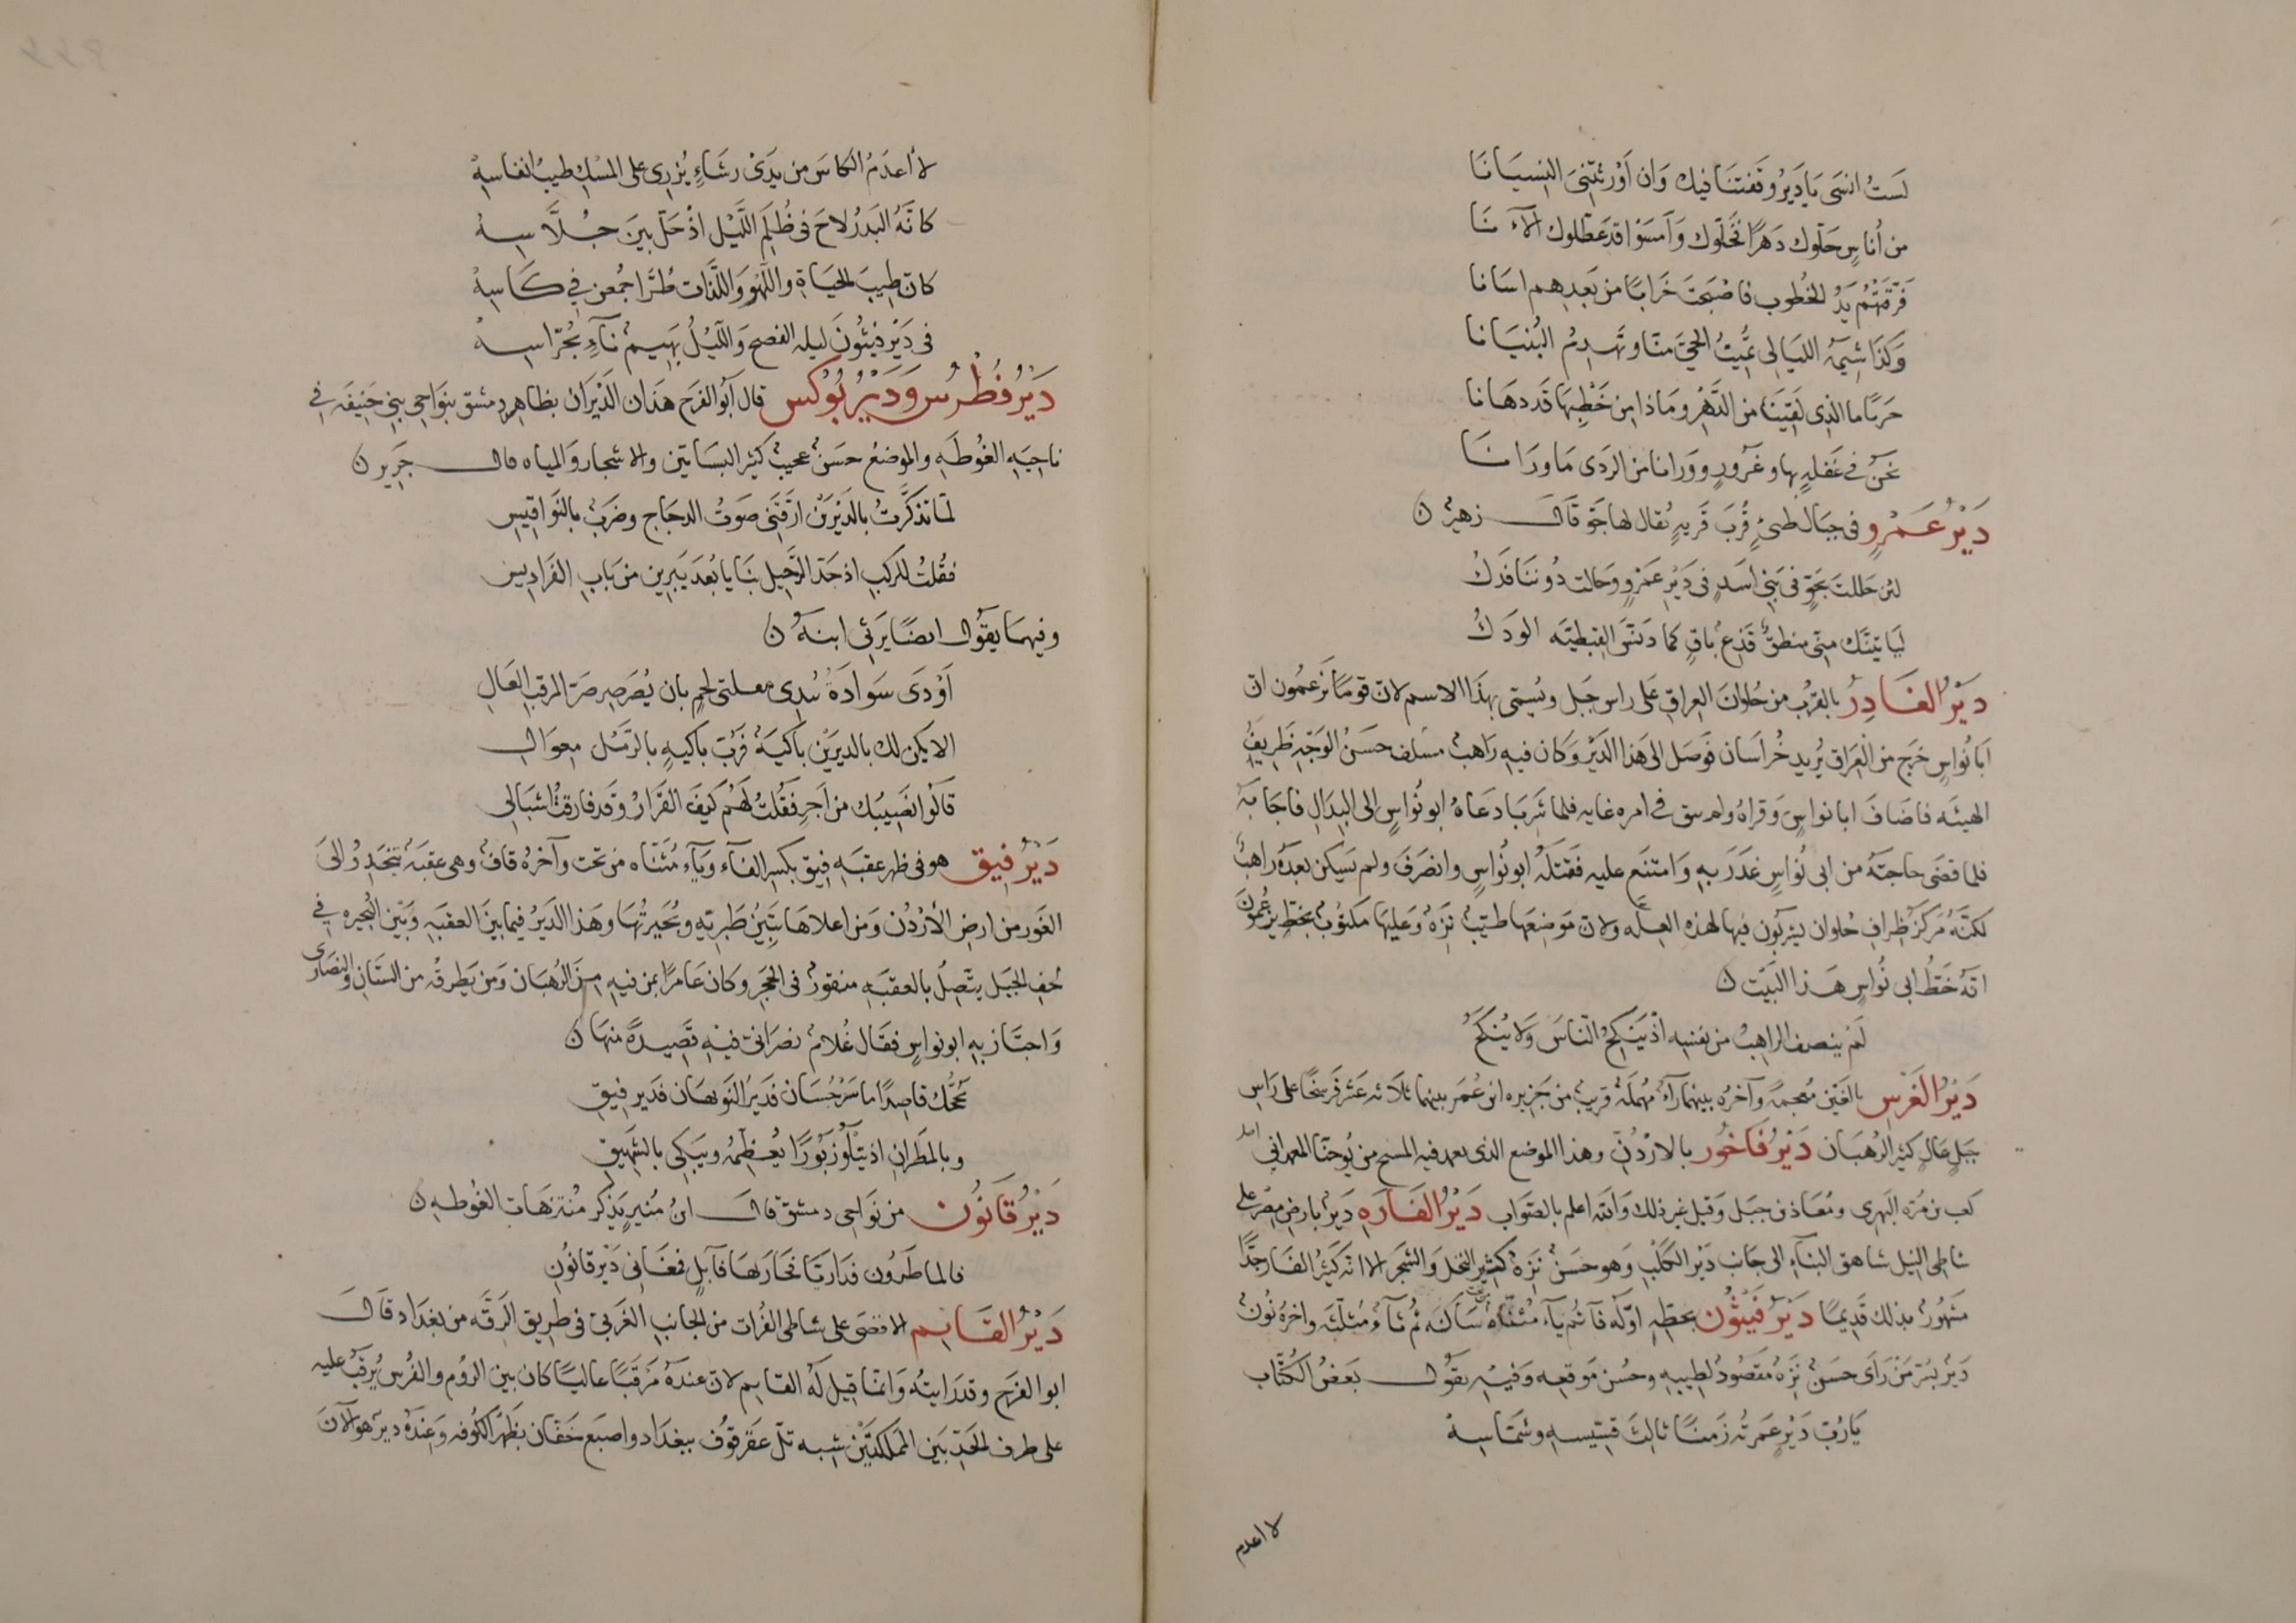 لَستُ انسَى يَا دَيرُ وقفتنَا فيك وَان أوْرثتنِىَ النِسيَانَا
من أُناسٍ حَلّوك دَهرًا فخَلّوك وَأمسَوْا قد عَطّلوك الآنَ
فَرّقتْهُم يَدُ الخُطوب فاصْبَحتَ خَرابًا من بَعدِهِم اسَانا
وَكذَا شِيمَةُ الليَالِى تمُيتُ الحىَّ منّا وتَهدِمُ البُنيَانا
حَربًا ما الذِى لَقِينَا من الدَّهْرِ ومَاذا مِن خَطْبِهَا قد دهَانا
نحنُ فى غفلةٍ بها وغرُورٍ ووَرانا من الرَدَى مَا ورَانَا
دَيْرُ عَمْروٍ فى جبَال طىءٍ قُرْبَ قَريةٍ يُقال لها جَوّ قَال زهيرٌ ن
لئن حَللتَ بجَوٍّ فى بَنِى اسَدٍ فى دَيْرِ عَمْرٍو وحَالت دُوننَا فَدَكُ
ليَاتِيَنَّك مِنّى منطقٌ قَذِعٌ باقٍ كما دَنَّسَ القِبطيَّه الوَدَكُ
دَيْرُ الغَادِرُ بالقرُب من حُلوانَ العِراقِ عَلى راس جَبل ويُسمّى بهَذا الاسم لان قومًا يَزعمُون ان
ابَا نُوَاسٍ خَرج من العِرَاق يُريد خُراسَان فوَصَل الى هَذا الدَيْر وَكان فيهِ رَاهبٌ حسَنُ الوَجْهِ ظَرِيفُ
الهيئَه فاضَافَ ابا نواسٍ وَقراهُ ولم يبق فى امره غايه فلما شَرِبَا دَعَاهُ ابو نُوَاسٍ الى البِدَالِ فاجَابَهُ
فلما قضَى حاجتَهُ من ابى نُوَاسٍ غَدَرَ بِهِ وَامتنَع عليه فقتلَهُ ابو نُوَاسٍ وانصَرَفَ ولم يَسكن بعدَهُ رَاهبٌ
لكنّهُ مَركزُ ظِرافِ حُلوان يشربُون فيها لهذه العِلّه ولان مَوضِعَها طيّبٌ نَزِهٌ وَعليهَا مكتُوبٌ بخطٍ يزعُمونَ
انّهُ خَطُّ ابى نُوَاسٍ هَذا البَيْت ن
لَم ينصف الراهبُ من نفسِهِ اذْ يَنكِحُ النّاسَ وَلا يُنكَحُ
دَيْرُ الغَرْسِ بالغَيْن مُعجمةً وآخرُه بينهما رآءٌ مُهمَلةٌ قريبٌ من جَزِيره ابن عُمَر بينهما ثلاثه عشَر فَرسخًا على رَاسِ
جَبلٍ عَالٍ كثير الرُهبَان دَيْرُ فَاخُور بالاردُنِّ وهذا الموضع الذى تعمد فيه المسيح من يُوحنّا المعمدانى
كعب بن مُرّه البَهزى ومُعاذ بن جبَل وَقيل غير ذلك وَالله اعلم بالصّوَاب دَيْرُ الفَارَه دَيرٌ بارض مِصْرَ على
شاطِى النِيل شاهق البنآءِ الى جَانب دَيْر الكَلْبِ وَهو حَسَنٌ نَزِهٌ كثير النخل وَالشجَر الا انّه كثيرُ الفَار جدًّا
مَشهُورٌ بذلك قديمًا دَيْرُ فَيثُون بخطّهِ اوّله فآءٌ ثم يآءٌ مُثنّاه سَاكنَه ثم ثآءٌ مُثلّثَه واخرهُ نُونٌ
دَيرٌ بسُرّ مَنْ رَأى حسَنٌ نَزِهٌ مَقصُودٌ لطِيبِهِ وحُسن مَوقعِه وَفيهِ يقُول بَعضُ الكُتّاب
يَا رُبَّ دَيْرٍ عَمرتُه زَمنًا ثالثَ قِسّيسِهِ وشمّاسِهْ
لا اعدم
لا أعدَمُ الكاسَ من يدَىْ رشَاءٍ يُزرِى على المِسْكِ طيبُ انفاسِهْ
كانّهُ البَدرُ لاحَ فى ظُلَمِ اللَّيْل اذْ حَلّ بَينَ جُلّاسِهْ
كان طِيبَ الحيَاةِ واللّهْوِ وَاللّذّات طُرًّا جُمعن فى كَاسِهْ
فى دَيْرِ فيثُونَ ليلة الفصح وَاللّيْلُ بهِيمٌ نآءٍ بحُرّاسِهْ
دَيْرُ فُطْرُس وَدَيْرُ بُوكس قال أبُو الفرَج هذَان الدَيْرَان بظاهر دمشق بنوَاحى بَنى حَنِيفه فى
ناحيَةِ الغُوطَهِ والموضعُ حسَنٌ عجيبٌ كثير البسَاتين والاشجار وَالمياه قال جَرير ن
لمّا تذكّرتُ بالدَيْرَيْن ارَّقنِى صَوتُ الدجَاج وضَربٌ بالنَوَاقيسِ
فقُلتُ للرّكبِ اذ جَدّ الرّحَيلُ بنَا يا بُعدَ يَبرِين من بَابِ الفَرَادِيس
وفيهمَا يقوُل ايضًا يَرثِى ابنهُ ن
أوْدَى سَوادَةُ يُبدِى مقلتى لحِمٍ بازٍ يُصَرصِر صَرَ المرقبِ العَالِ
الا يكن لك بالديرَيْن باكيةٌ فرُبّ باكيةٍ بالرَّمْل مِعوَالِ
قالُوا نَصِيبُك من أَجرٍ فقُلتُ لهُم كيفَ القَرَارُ وَقد فارقتُ اشبَالِى
دَيْرُ فِيق هو فى ظهر عقبَهِ فِيق بكسر الفآء وَيآءٍ مُثنّاه من تحت وآخرهُ قافٌ وهى عقبَةٌ تنحَدِرُ الىَ
الغَور من ارض الأرْدُن وَمن اعلاهَا تَبِينُ طَبريّهِ وبُحَيرَتُهَا وهَذا الدَيرُ فيما بينَ العقبَهِ وَبَيْن البُحيره فى
لِحْف الجَبَل يتّصلُ بالعقبَهِ منقورٌ فى الحجَر وكان عَامرًا بمن فيهِ من الرُهبَان وَمن يَطرقُه من السّيّارَ والنصَارى
وَاجتَاز بهِ ابو نواسٍ فقَال غُلامٌ نصرَانىٌ فيْهِ قَصِيدةً منهَا ن
بحَجّك قاصِدًا ماسَرْجَسَان فدَيْر النّوبهَان فدَير فيقِ
وبالمطرانِ اذ يَتْلُو زَبُورًا يُعظّمُه ويَبكِى بالشّهِيقِ
دَيْرُ قَانُون من نوَاحى دمشق قال ابنُ مُنيرٍ يَذكر مُنتزهَات الغُوطهِ ن
فالماطرُون فدَاريّا فجَارتهَا فآبلٍ فمغَانِى دَيْر قانُونِ
دَيْرُ القَائم الاقصَى على شاطى الفُرات من الجانب الغَربىّ فى طريق الرقّه من بغدَاد قال
ابو الفرَج وقد رَايتُه وَانما قيل لَهُ القائم لان عندَهُ مَرقبًا عاليًا كان بين الرُوم والفُرس يُرقَبُ عليه
على طرف الحَدّ بَين المَملكتَيْن شِبه تلّ عَقرقُوْف ببغدَاد واصبَع خَفّان بظَهْر الكوُفه وَعندَهُ دير هو الآنَ